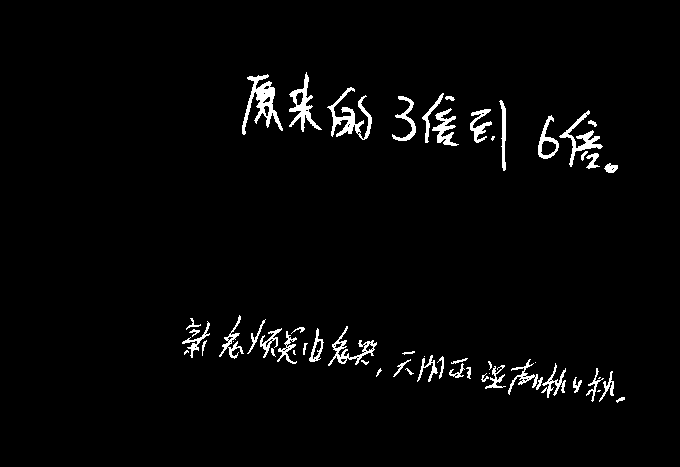 原来的3倍到6倍。
新鬼烦冤旧鬼哭,天阴雨湿声啾啾。